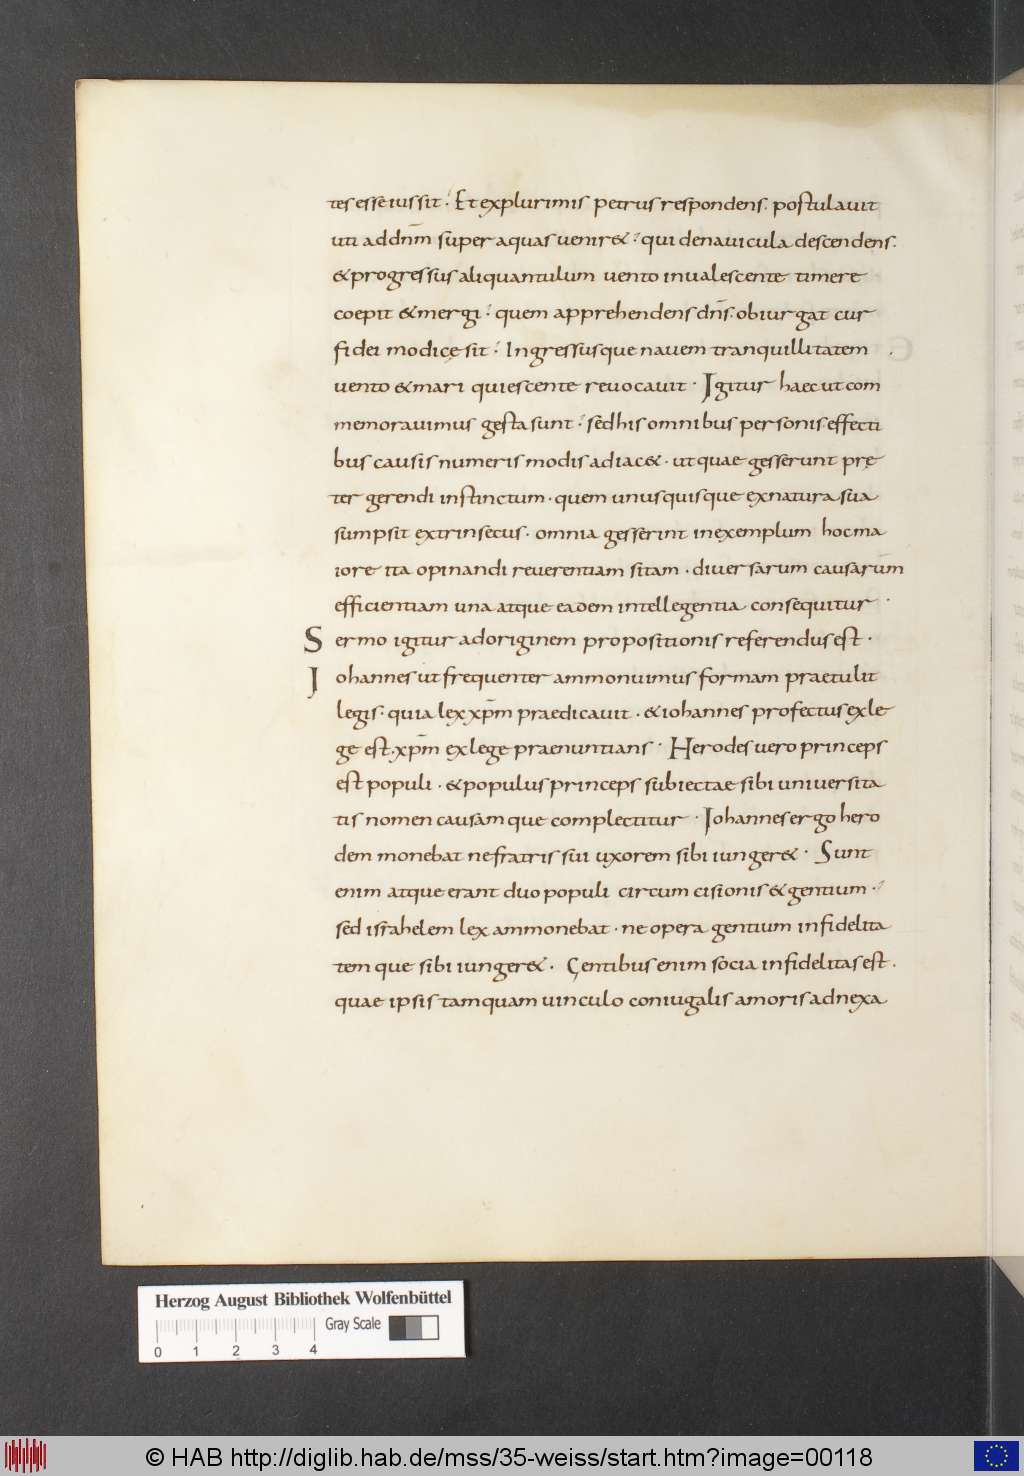 tes esse iussit. Et ex plurimis petrus respondens. postulauit
uti ad dn̄m super aquas uenir&. qui de nauicula descendens.
& progressus aliquantulum uento inualescente timere
coepit & mergi. quem apprehendens dn̄s. obiurgat cur
fidei modicę sit. Ingressusque nauem tranquillitatem
uento & mari quiescente reuocauit. Igitur haec ut com
memorauimus gesta sunt. sed his omnibus personis. effecti
bus causis numeris modis adiac&. ut quae gesserunt prę
ter gerendi instinctum. quem unusquisque ex natura sua
sumpsit extrinsecus. omnia gesserint in exemplum hoc ma
iore ita opinandi reuerentiam sitam. diuersarum causarūm
efficientiam una atque eadem intellegentia consequitur.
Sermo igitur ad originem propositionis referendus est.
Iohannes ut frequenter ammonuimus formam praetulit
legis. quia lex xp̄m praedicauit. & iohannes profectus ex le
ge est. xp̄m ex lege praenuntians. Herodes uero princeps
est populi. & populus princeps subiectae sibi uniuersita
tis nomen causamque complectitur. Iohannes ergo hero
dem monebat ne fratris sui uxorem sibi iunger&. Sunt
enim atque erant duo populi circumcisionis & gentium.
sed israhelem lex ammonebat. ne opera gentium infidelita
temque sibi iunger&. Gentibus enim socia infidelitas est.
quae ipsis tamquam uinculo coniugalis amoris adnexa
Herzog August Bibliothek Wolfenbüttel
Gray Scale
0 1 2 3 4
© HAB http://diglib.hab.de/mss/35-weiss/start.htm?image=00118